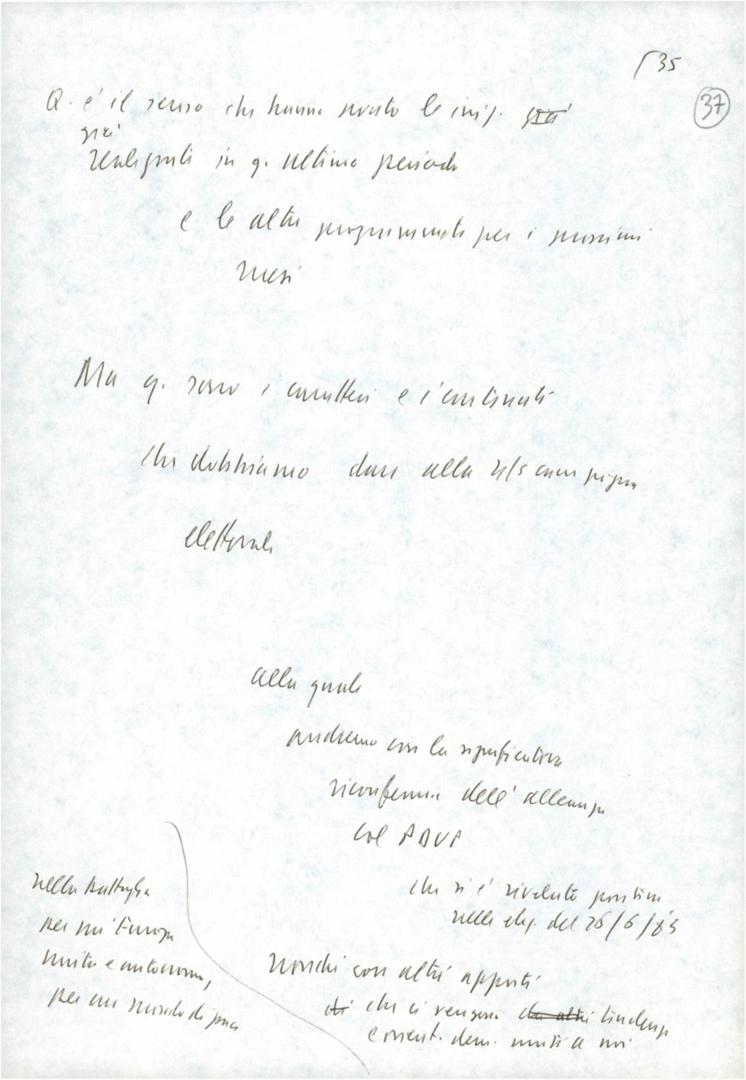 35
37
Q. è il senso che hanno avuto le iniz. già
già
realizzati in q. ultimo periodo
e le altre programmate per i prossimi
mesi
Ma q. sono i caratteri e i contenuti
che dobbiamo dare alla n/s campagna
elettorale
alla quale
andremo con la significativa
riconferma dell'alleanza
col PDUP
che si è rivelata positiva
nelle elez. del 26/6/83
nonché con altri apporti
che ci vengono da altri tendenze
e orient. dem. uniti a noi
nella battaglia
per un'Europa
unita e autonoma,
per un mondo di pace